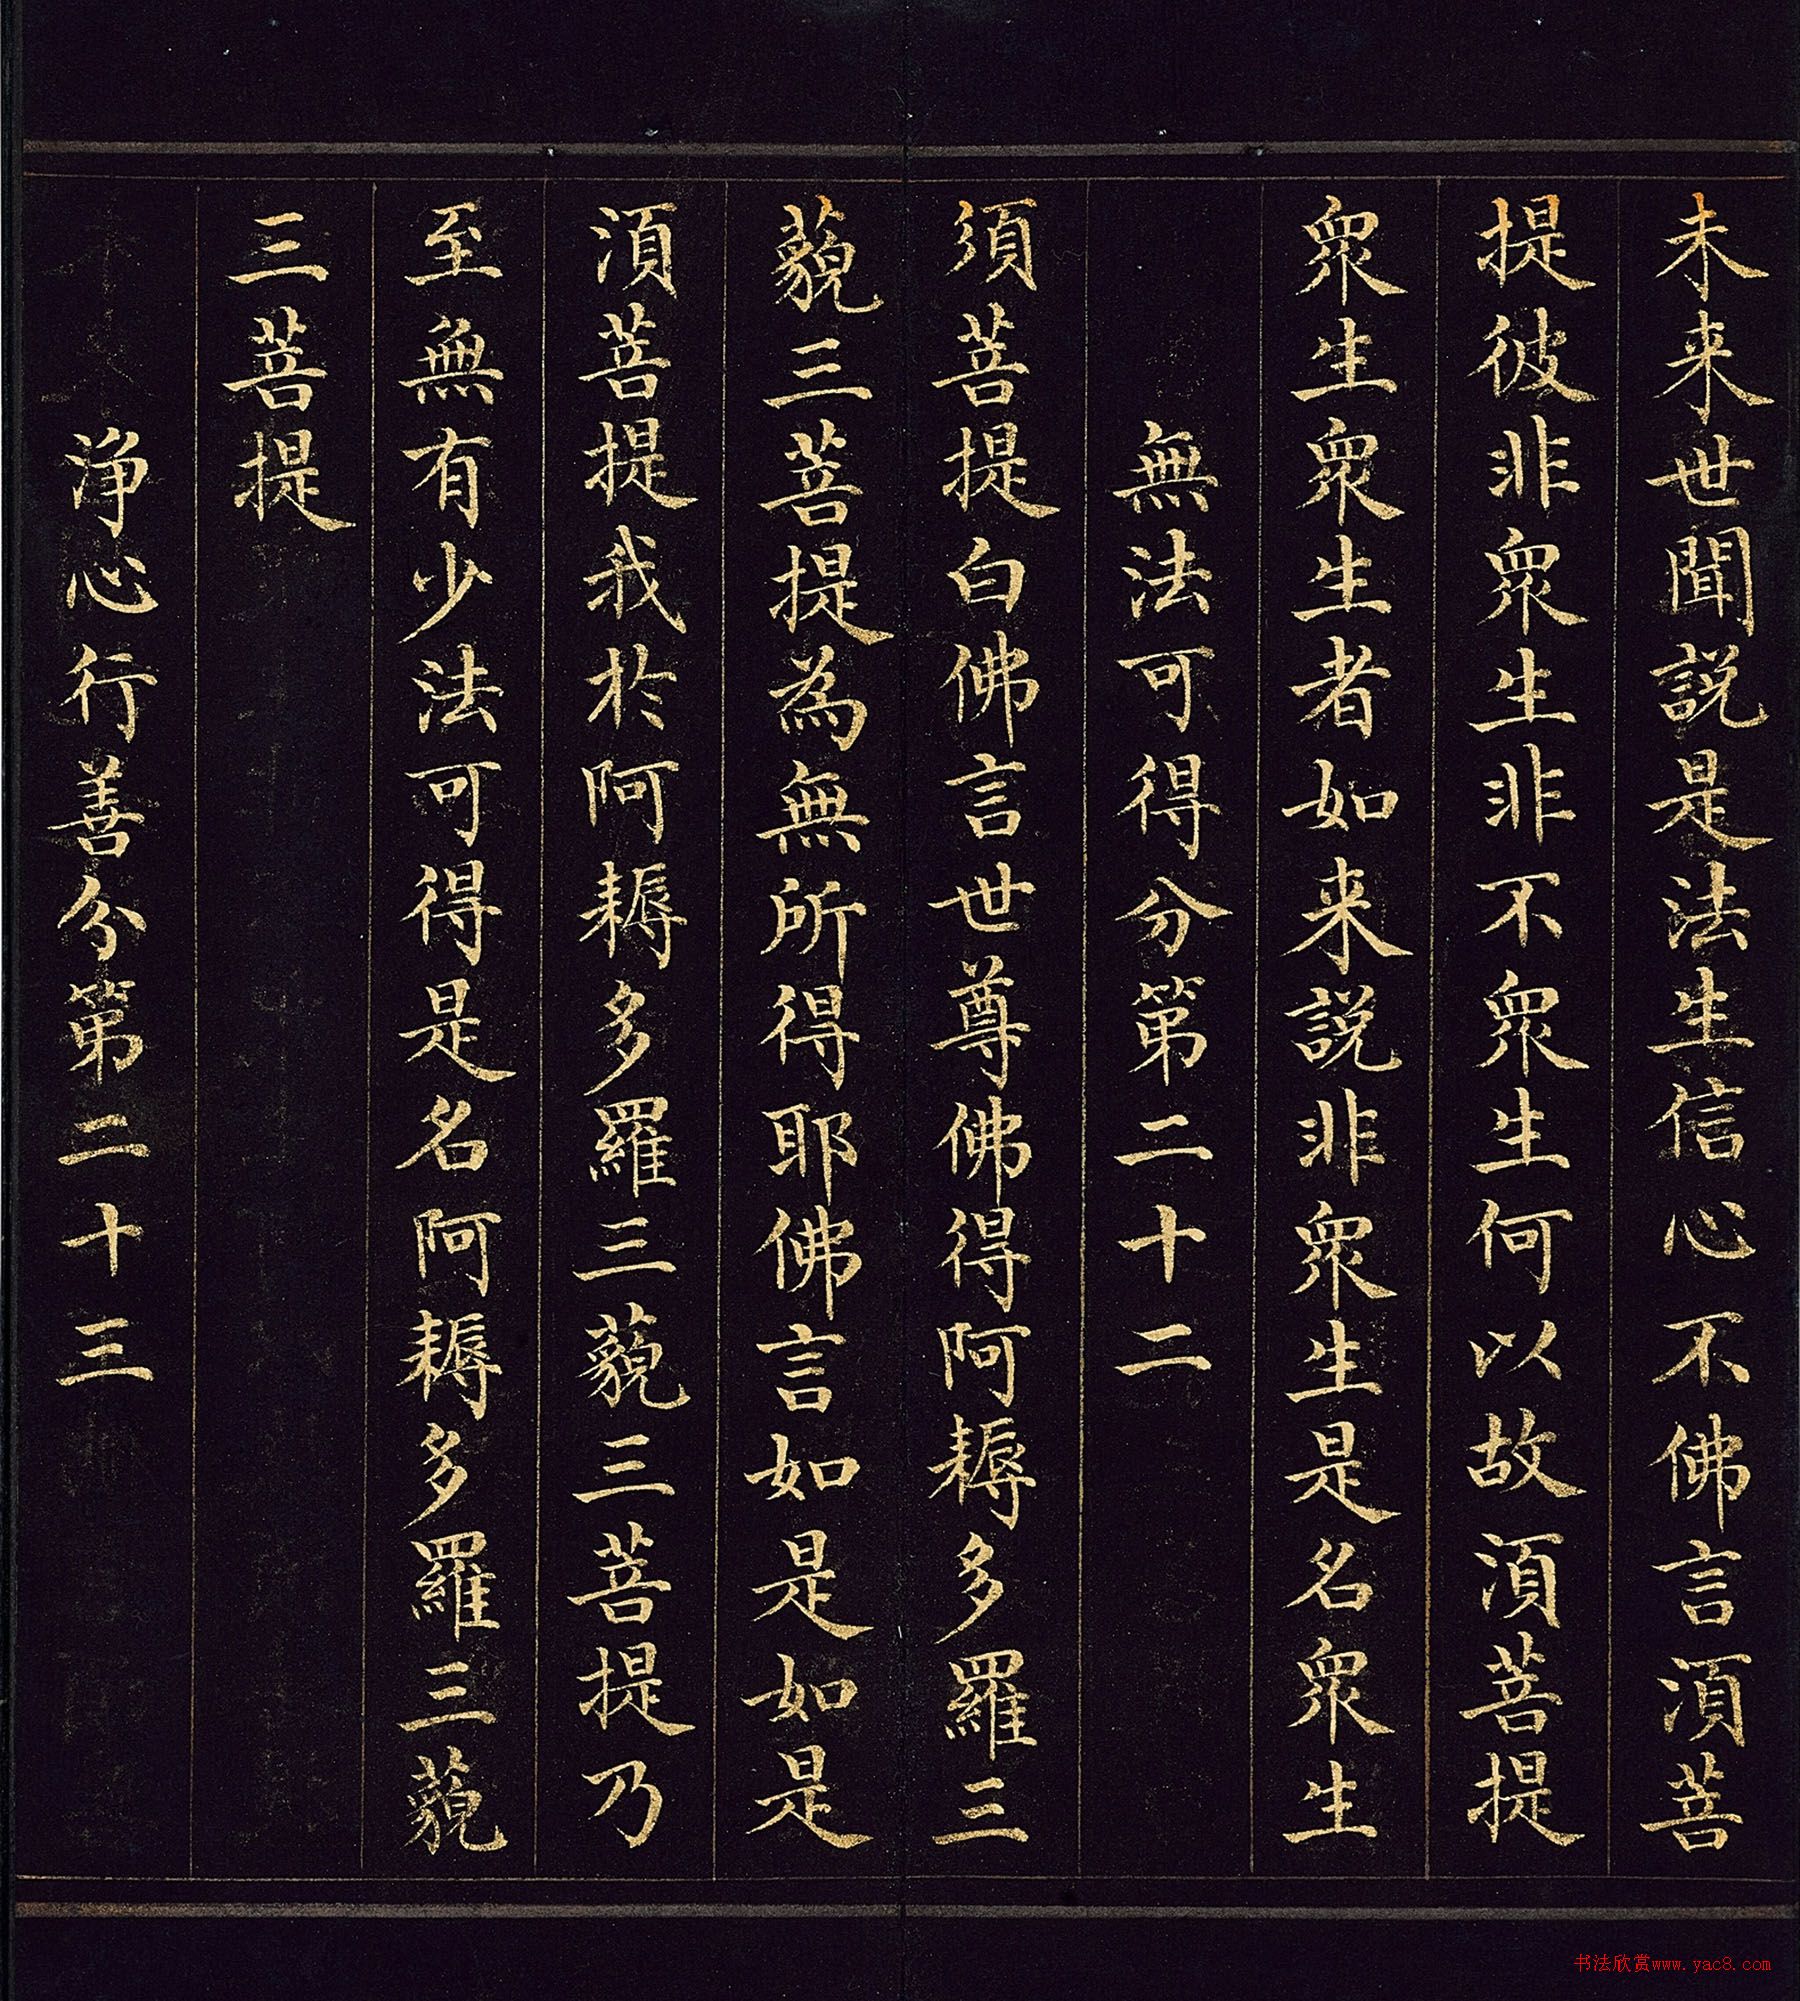 未来世聞説是法生信心不佛言湏菩
提彼非衆生非不衆生何以故湏菩提
衆生衆生者如来説非衆生是名衆生
無法可得分第二十二
須菩提白佛言世尊佛得阿耨多羅三
藐三菩提為無所得耶佛言如是如是
湏菩提我於阿耨多羅三藐三菩提乃
至無有少法可得是名阿耨多羅三藐
三菩提
淨心行善分第二十三
书法欣赏www.yac8.com